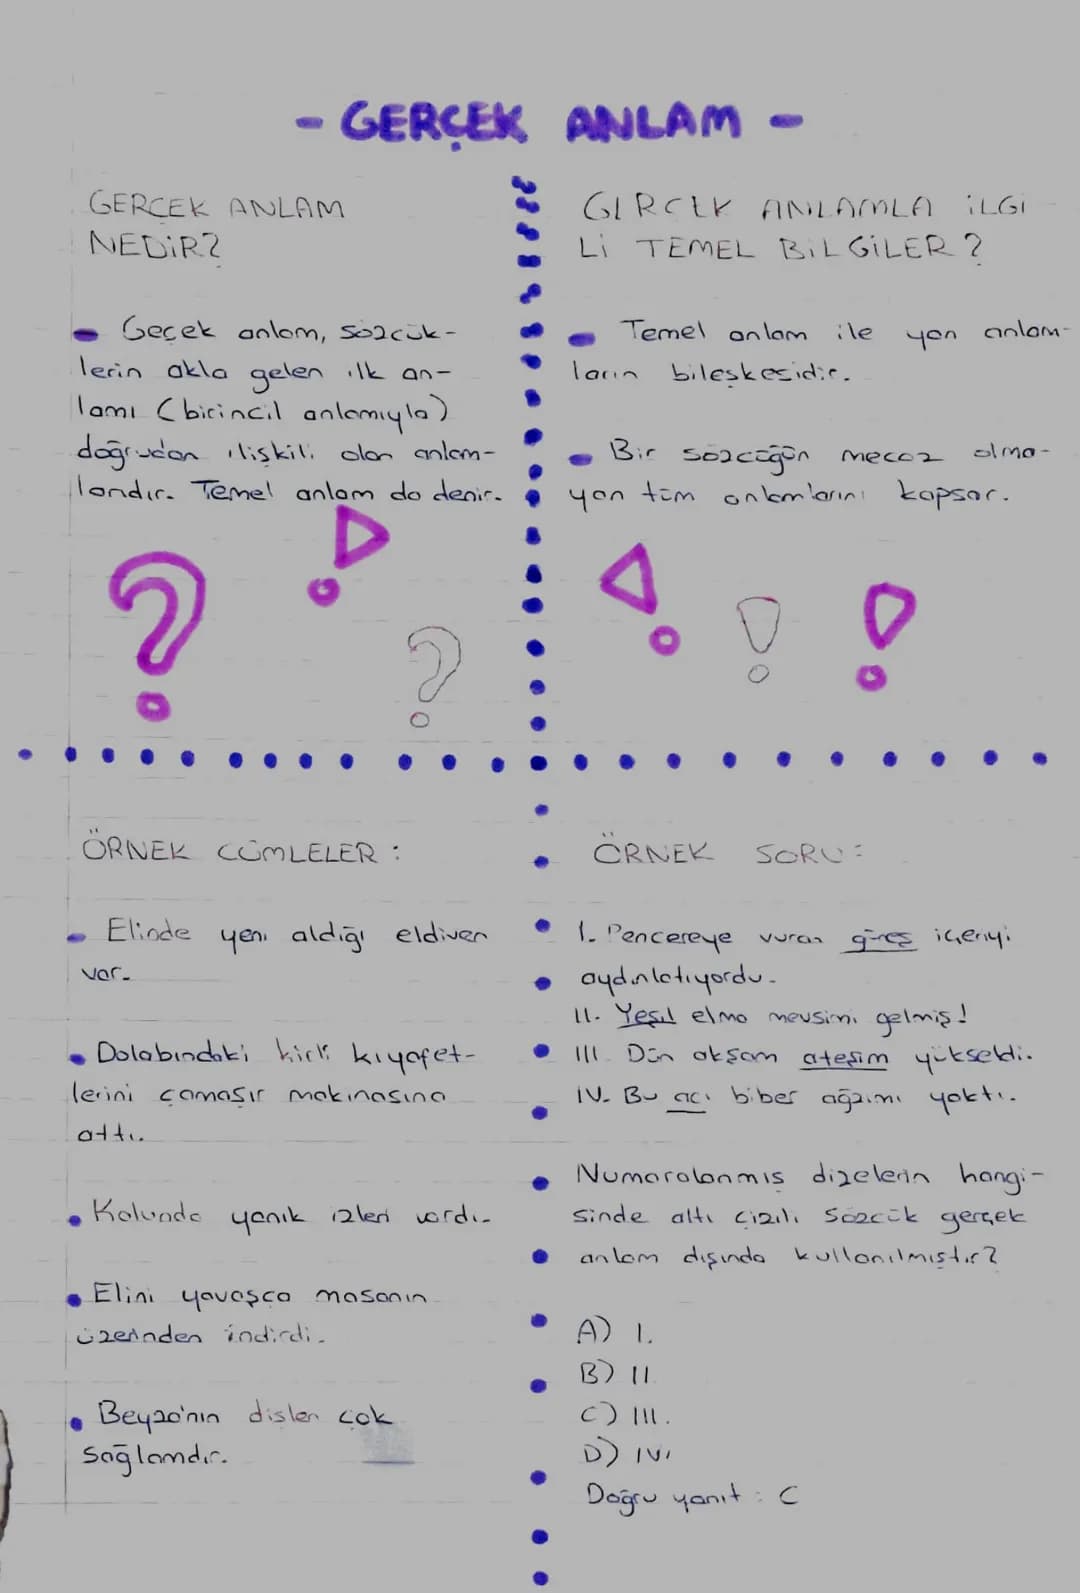 - GERÇEK ANLAM -
GERÇEK ANLAM
NEDİR?
- Geçek anlam, sözcük-
lerin akla gelen ilk an-
lamı (birincil anlamıyla)
doğrudan ilişkili olan anlam-
landır. Temel anlam da denir.
GERÇEK ANLAMLA İLGİ
Lİ TEMEL BİLGİLER?
- Temel anlam ile yan anlam-
ların bileşkesidir.
- Bir sözcüğün mecaz olma-
yan tüm anlamlarını kapsar.
ÖRNEK CÜMLELER:
- Elinde yeni aldığı eldiven
var.
• Dolabındaki kirli kıyafet-
lerini çamaşır makinasına
attı.
• Kolunda yanık izleri vardı.
• Elini yavaşça masanın
üzerinden indirdi.
• Beyza'nın dişleri çok
sağlamdır.
ÖRNEK SORU:
I. Pencereye vuran güneş içeriyi
aydınlatıyordu.
II. Yeşil elma mevsimi gelmiş!
III. Dün akşam ateşim yükseldi.
IV. Bu acı biber ağzımı yaktı.
Numaralanmış dizelerin hangi-
sinde altı çizili sözcük gerçek
anlam dışında kullanılmıştır?
A) I.
B) II.
C) III.
D) IV.
Doğru yanıt: C